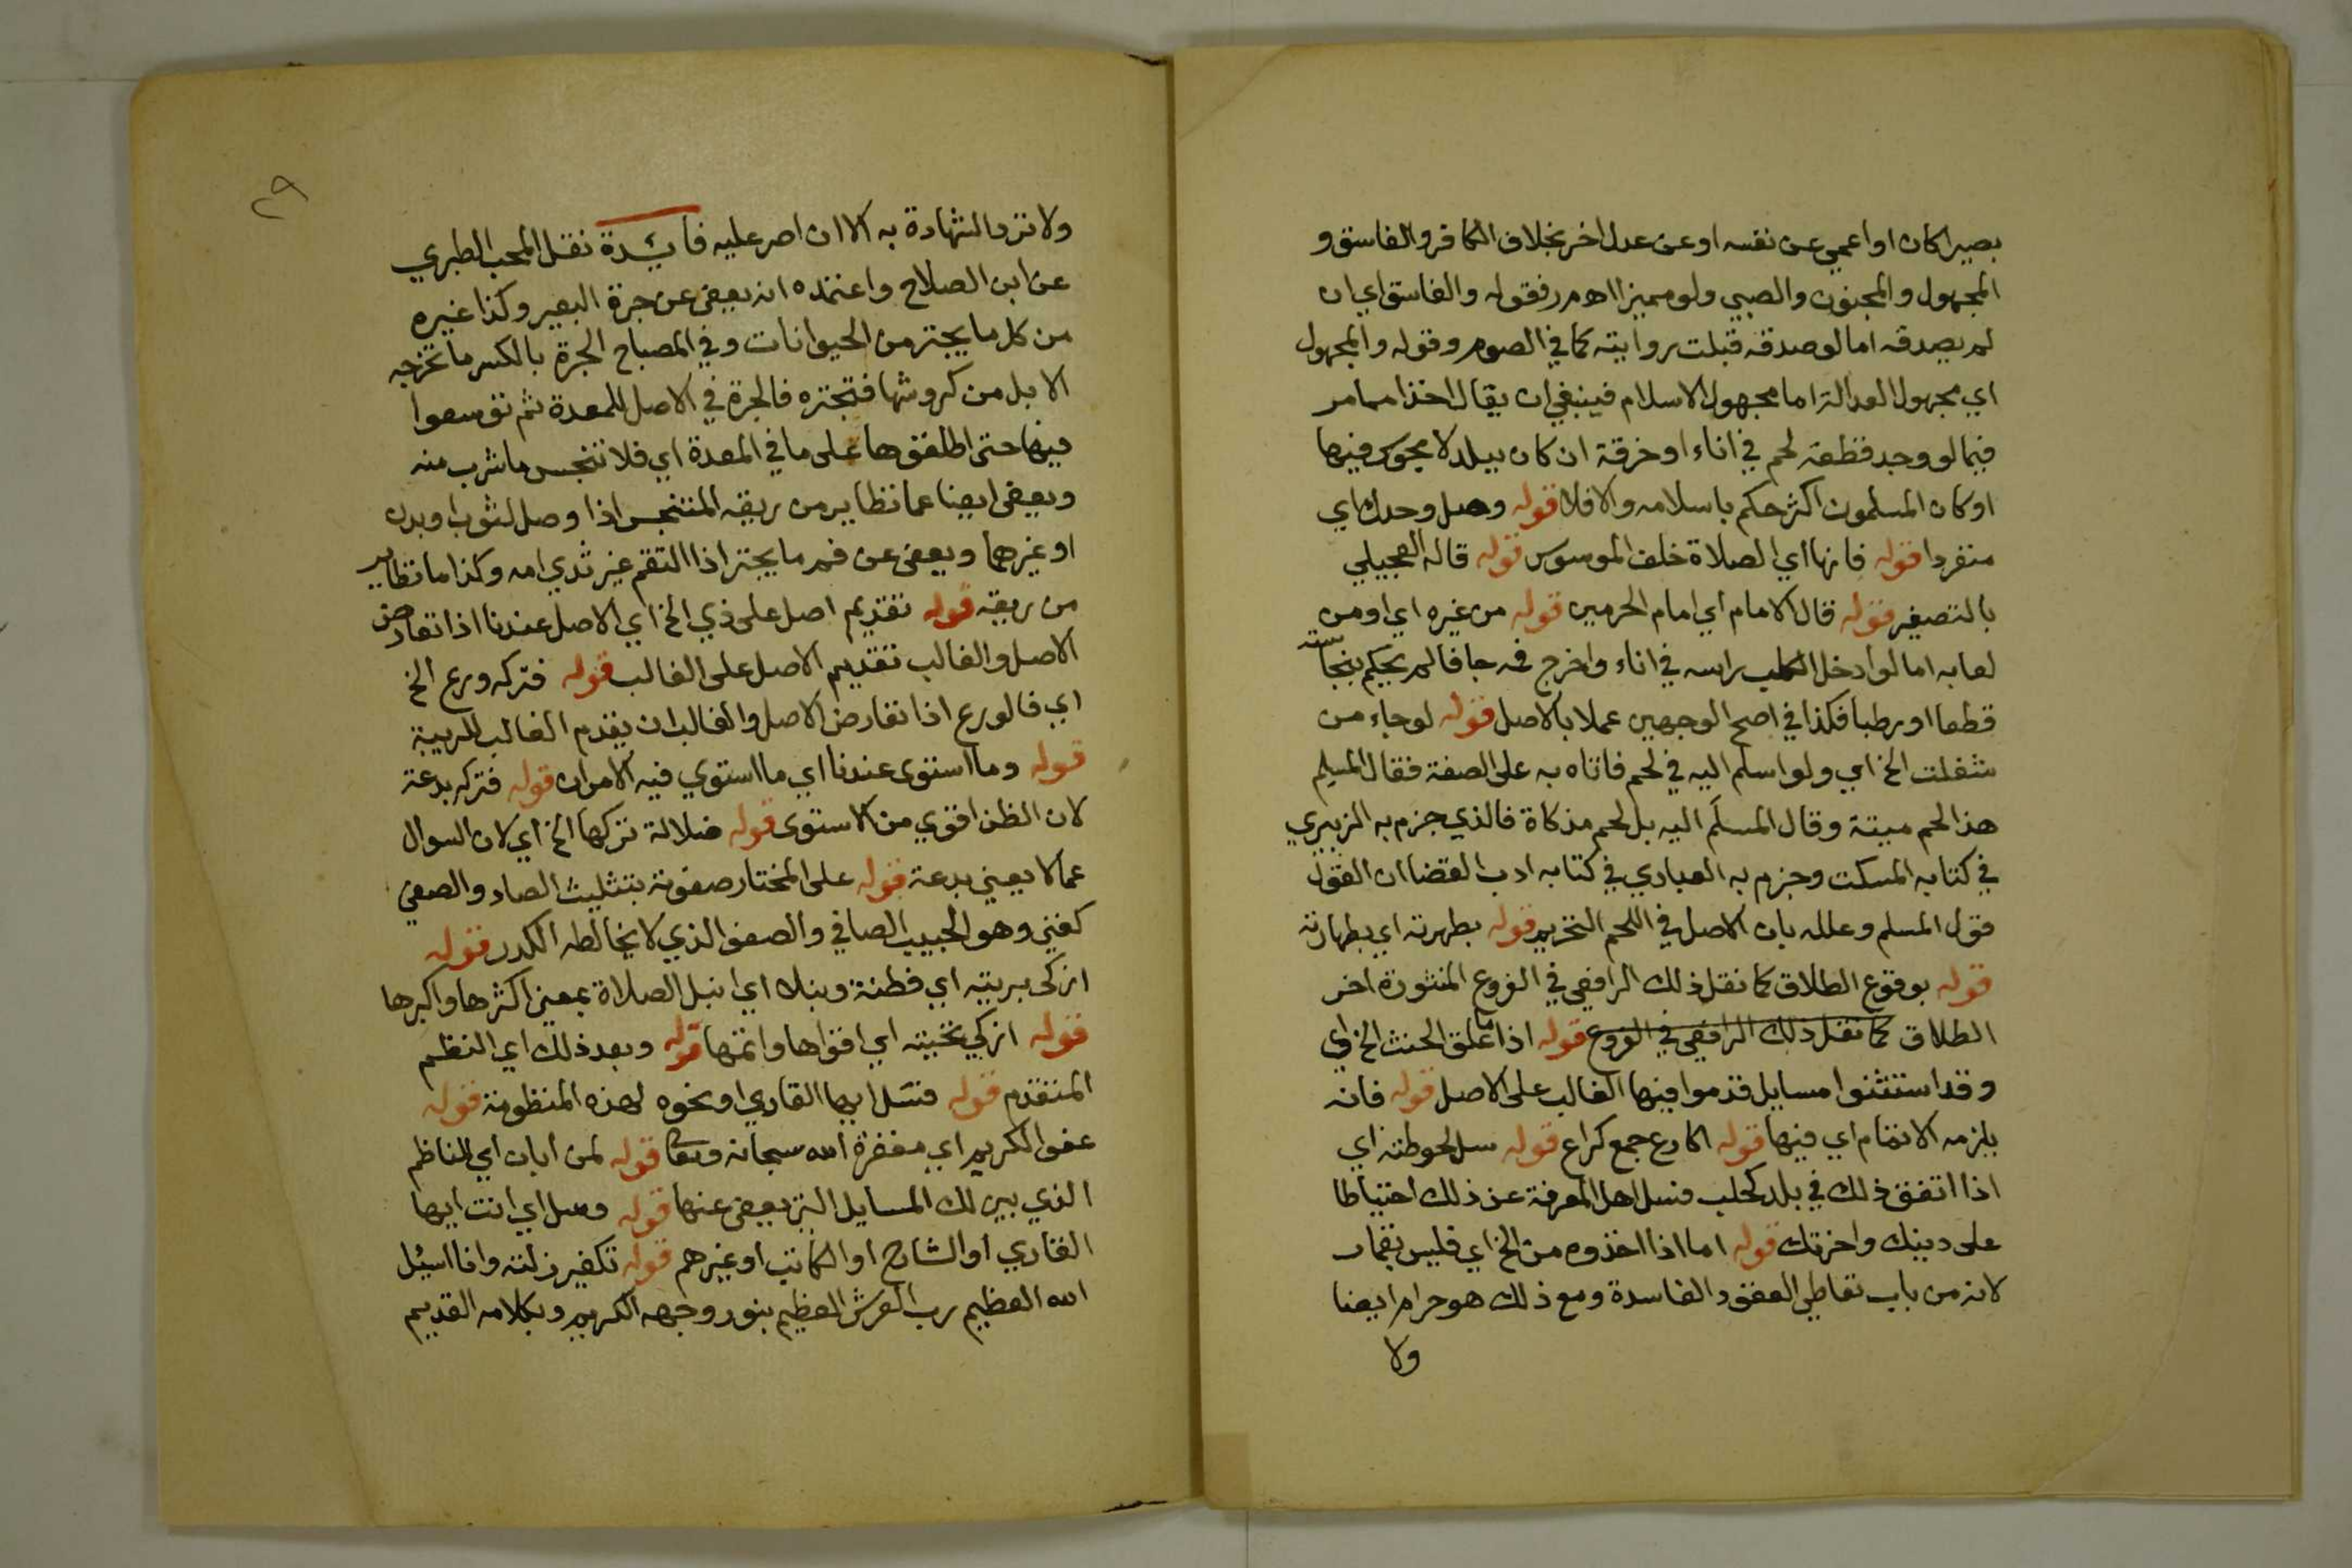 بصيرا كان او اعمي عن نفسه او عن عدل اخر بخلاف الكافر والفاسق و
المجهول والمجنون والصبي ولو مميزا اهـ م ر فقوله والفاسق اي ان
لم يصدقه اما لو صدقه قبلت روايته كما في الصوم وقوله والمجهول
اي مجهول العدالة اما مجهول الاسلام فينبغي ان يقال اخذا مما مر
فيما لو وجد قطعة لحم في اناء او خرقة ان كان ببلد لا مجوس فيها
او كان المسلمون اكثر حكم باسلامه والا فلا قوله وصل وحدك اي
منفردا قوله فانها اي الصلاة خلف الموسوس قوله قاله العجيلي
بالتصغير قوله قال الامام اي امام الحرمين قوله من غيره اي او من
لعابه اما لو ادخل الكلب راسه في اناء واخرج فمه جافا لم يحكم بنجاسته
قطعا او رطبا فكذا في اصح الوجهين عملا بالاصل قوله لو جاء من
شغلت الخ اي ولو اسلم اليه في لحم فاتاه به على الصفة فقال المسلم
هذا لحم ميتة وقال المسلَم اليه بل لحم مذكاة فالذي جزم به الزبيري
في كتابه المسكت وجزم به العبادي في كتابه ادب القضا ان القول
قول المسلم وعلله بان الاصل في اللحم التحريم قوله بطهرته اي بطهارته
قوله بوقوع الطلاق كما نقل ذلك الرافعي في الفروع المنثورة اخر
الطلاق كما نقل ذلك الرافعي في الفروع قوله اذا ما علق الحنث الخ اي
وقد استثنوا مسايل قدموا فيها الغالب على الاصل قوله فانه
يلزمه الاتمام اي فيها قوله اكارع جمع كراع قوله سل لحوطته اي
اذا اتفق ذلك في بلد كحلب فسل اهل المعرفة عن ذلك احتياطا
على دينك واخرتك قوله اما اذا اخذوه من الخ اي فليس بقمار
لانه من باب تعاطي العقود الفاسدة ومع ذلك هو حرام ايضا
ولا
٢٩
ولا ترد الشهادة به الا ان اصر عليه فايدة نقل المحب الطبري
عن ابن الصلاح واعتمده انه يعفى عن جرة البعير وكذا غيره
من كل ما يجتر من الحيوانات وفي المصباح الجرة بالكسر ما تخرجه
الابل من كروشها فتجتره فالجرة في الاصل للمعدة ثم توسعوا
فيها حتى اطلقوها على ما في المعدة اي فلا تنجس ما شرب منه
ويعفى ايضا عما تطاير من ريقه المتنجس اذا وصل لثوب او بدن
او غيرهما ويعفى عن فم ما يجتر اذا التقم غير ثدي امه وكذا ما تطاير
من ريقه قوله تقديم اصل على ذي الخ اي الاصل عندنا اذا تعارض
الاصل والغالب تقديم الاصل على الغالب قوله فتركه ورع الخ
اي فالورع اذا تعارض الاصل والغالب ان يقدم الغالب للريبة
قوله وما استوى عندنا اي ما استوي فيه الامران قوله فتركه بدعة
لان الظن اقوي من الاستوى قوله ضلالة تركها الخ اي لان السوال
عما لا يعني بدعة قوله على المختار صفوته بتثليث الصاد والصفي
كغني وهو الحبيب الصافي والصفو الذي لا يخالطه الكدر قوله
ازكى بريته اي فطنة ونبلا اي انبل الصلاة بمعنى اكثرها واكبرها
قوله ازكي تحيته اي اقواها واتمها قوله وبعد ذلك اي النظم
المتقدم قوله فسَل ايها القاري او نحوه لهذه المنظومة قوله
عفو الكريم اي مغفرة الله سبحانه وتعا قوله لمن ابان اي الناظم
الذي بين لك المسايل التي يعفى عنها قوله وسل اي انت ايها
القاري او الشارح او الكاتب او غيرهم قوله تكفير زلته وانا اسيل
الله العظيم رب العرش العظيم بنور وجهه الكريم وبكلامه القديم